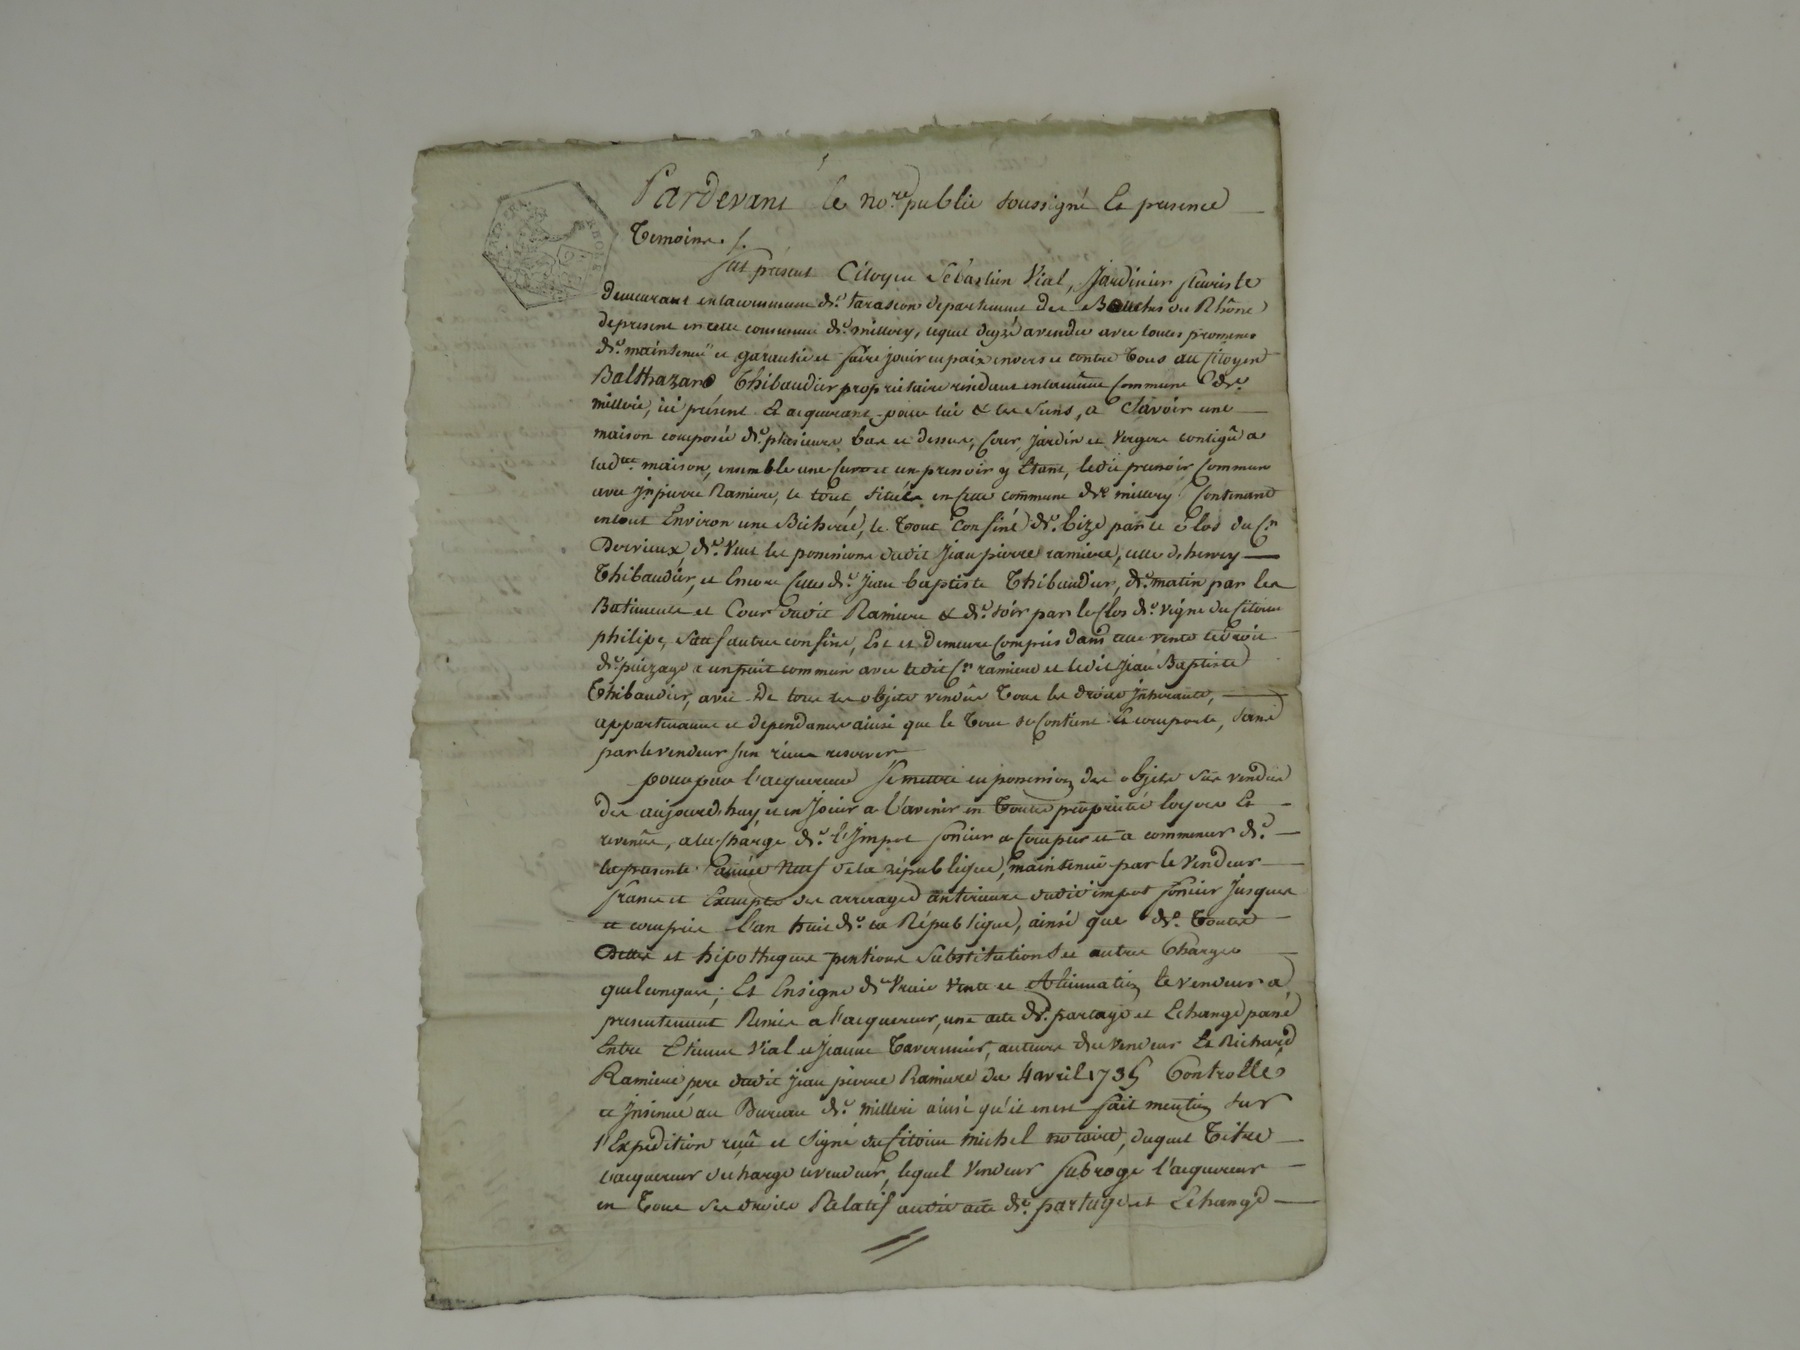 Pardevant le no.re public soussigné Et presence
Temoins.
fut présent Citoyen Sébastien Vial, Jardinier fleuriste
demeurant en la commune de tarascon departement des Bouches du Rhône
de present en cette commune de millery, lequel de gré a vendu avec toutes promesses
de maintenue et garantie et faire jouir en paix envers et contre Tous au Citoyen
Balthazard Thibaudier proprietaire résidant en la même Commune de
millerie, ici présent Et acquerant pour lui & les siens, a Sçavoir une
maison composée de plusieurs bas et dessus, Cour, Jardin et Verger contigu a
lad.te maison, ensemble une Cuve et un pressoir y Etant, ledit pressoir Commun
avec Jn pierre Ramiere, le tout Situés en Cette commune de millery Contenant
en tout Environ une Bicherée, le Tout Confiné de bize par le Clos du C.n
Dervieux, de Vent les possessions dudit Jean pierre ramiere, celle de henry
Thibaudier, et Encore Celle de Jean baptiste Thibaudier, de matin par les
Batiments et Cour dudit Ramiere & de soir par le Clos de Vigne du Citoien
philipe, Sauf autre confins, Est et demeure Compris dans cette vente le droit
de puizage a un puit commun avec ledit C.n ramiere et ledit Jean Baptiste
Thibaudier, avec De tous les objets vendus Tous les droits Inherants,
appartenances et dependances ainsi que le Tout se Contient Et comporte, Sans
par le vendeur s'en rien reserver
pour par l'acquereur Se mettre en possession des objets Sus vendus
des aujourdhuy et en Jouir a l'avenir en Toutes propriété loyers Et
revenus, a la Charge de l'Impot foncier a Compter et a commencer de
la presente année Neuf de la République, maintenue par le Vendeur
francs et Exempts des arrerages anterieurs dudit impot foncier Jusques
et compris l'an huit de la République, ainsi que de Toutes
Dettes et hipotheques pentions Substitutions et autres Charges
quelconques; Et En signe de Vraie Vente et Alienation le vendeur a
presentement Remis a l'acquereur, une acte de partage et Echange passé
Entre Etienne Vial et Jeanne Tavernier, auteurs du vendeur Et Richard
Ramiere pere dudit Jean pierre Ramiere du 4 avril 1735 Controllé
et Insinué au Bureau de millerie ainsi qu'il en est fait mention Sur
l'Expedition reçue et Signé du Citoien Michel notaire, duquel Titre
l'acquereur decharge le vendeur, lequel Vendeur Subroge l'acquereur
en Tous Ses droits Relatif audit acte de partage et Echange